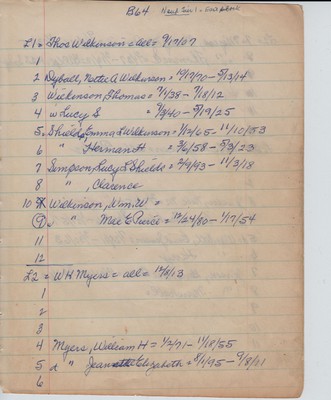 B64
L1 = Thos Wilkinson = all = 9/17/07
1
2 Dyball, Nettie A Wilkinson = 10/17/70 - 5/13/14
3 Wilkinson, Thomas = 7/38 - 7/18/12
4 w Lucy S = 3/40 - 9/19/25
5 Shields, Emma L Wilkinson = 1/12/65 - 11/10/53
6 " Herman H = 3/6/58 - 5/3/23
7 Simpson, Lucy L Shields = 2/9/93 - 11/3/18
8 " , Clarence
10 Wilkinson, Wm. W =
9 " Mae E Pierce = 12/24/80 - 1/17/54
11
12
L2 = W H Myers = all = 12/9/13
1
2
3
4 Myers, William H = 1/2/71 - 1/18/55
5 " Jeannette Elizabeth = 8/1/95 - 9/8/11
6